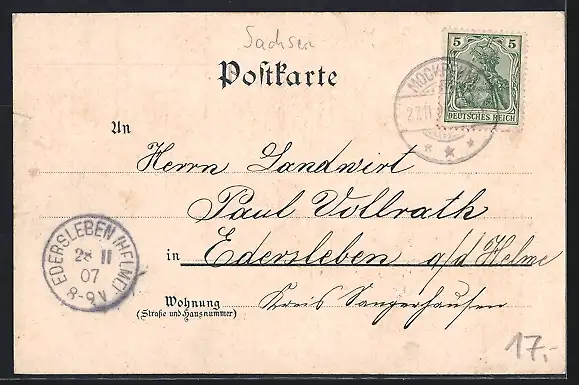 Sachsen
Postkarte
5 5
DEUTSCHES REICH
27.11
An
Herrn Landwirt
Paul Vollrath
in Edersleben a/d Helme
EDERSLEBEN (HELME)
28 11
07
8-9V
Wohnung
(Straße und Hausnummer)
Kreis Sangerhausen
17,-